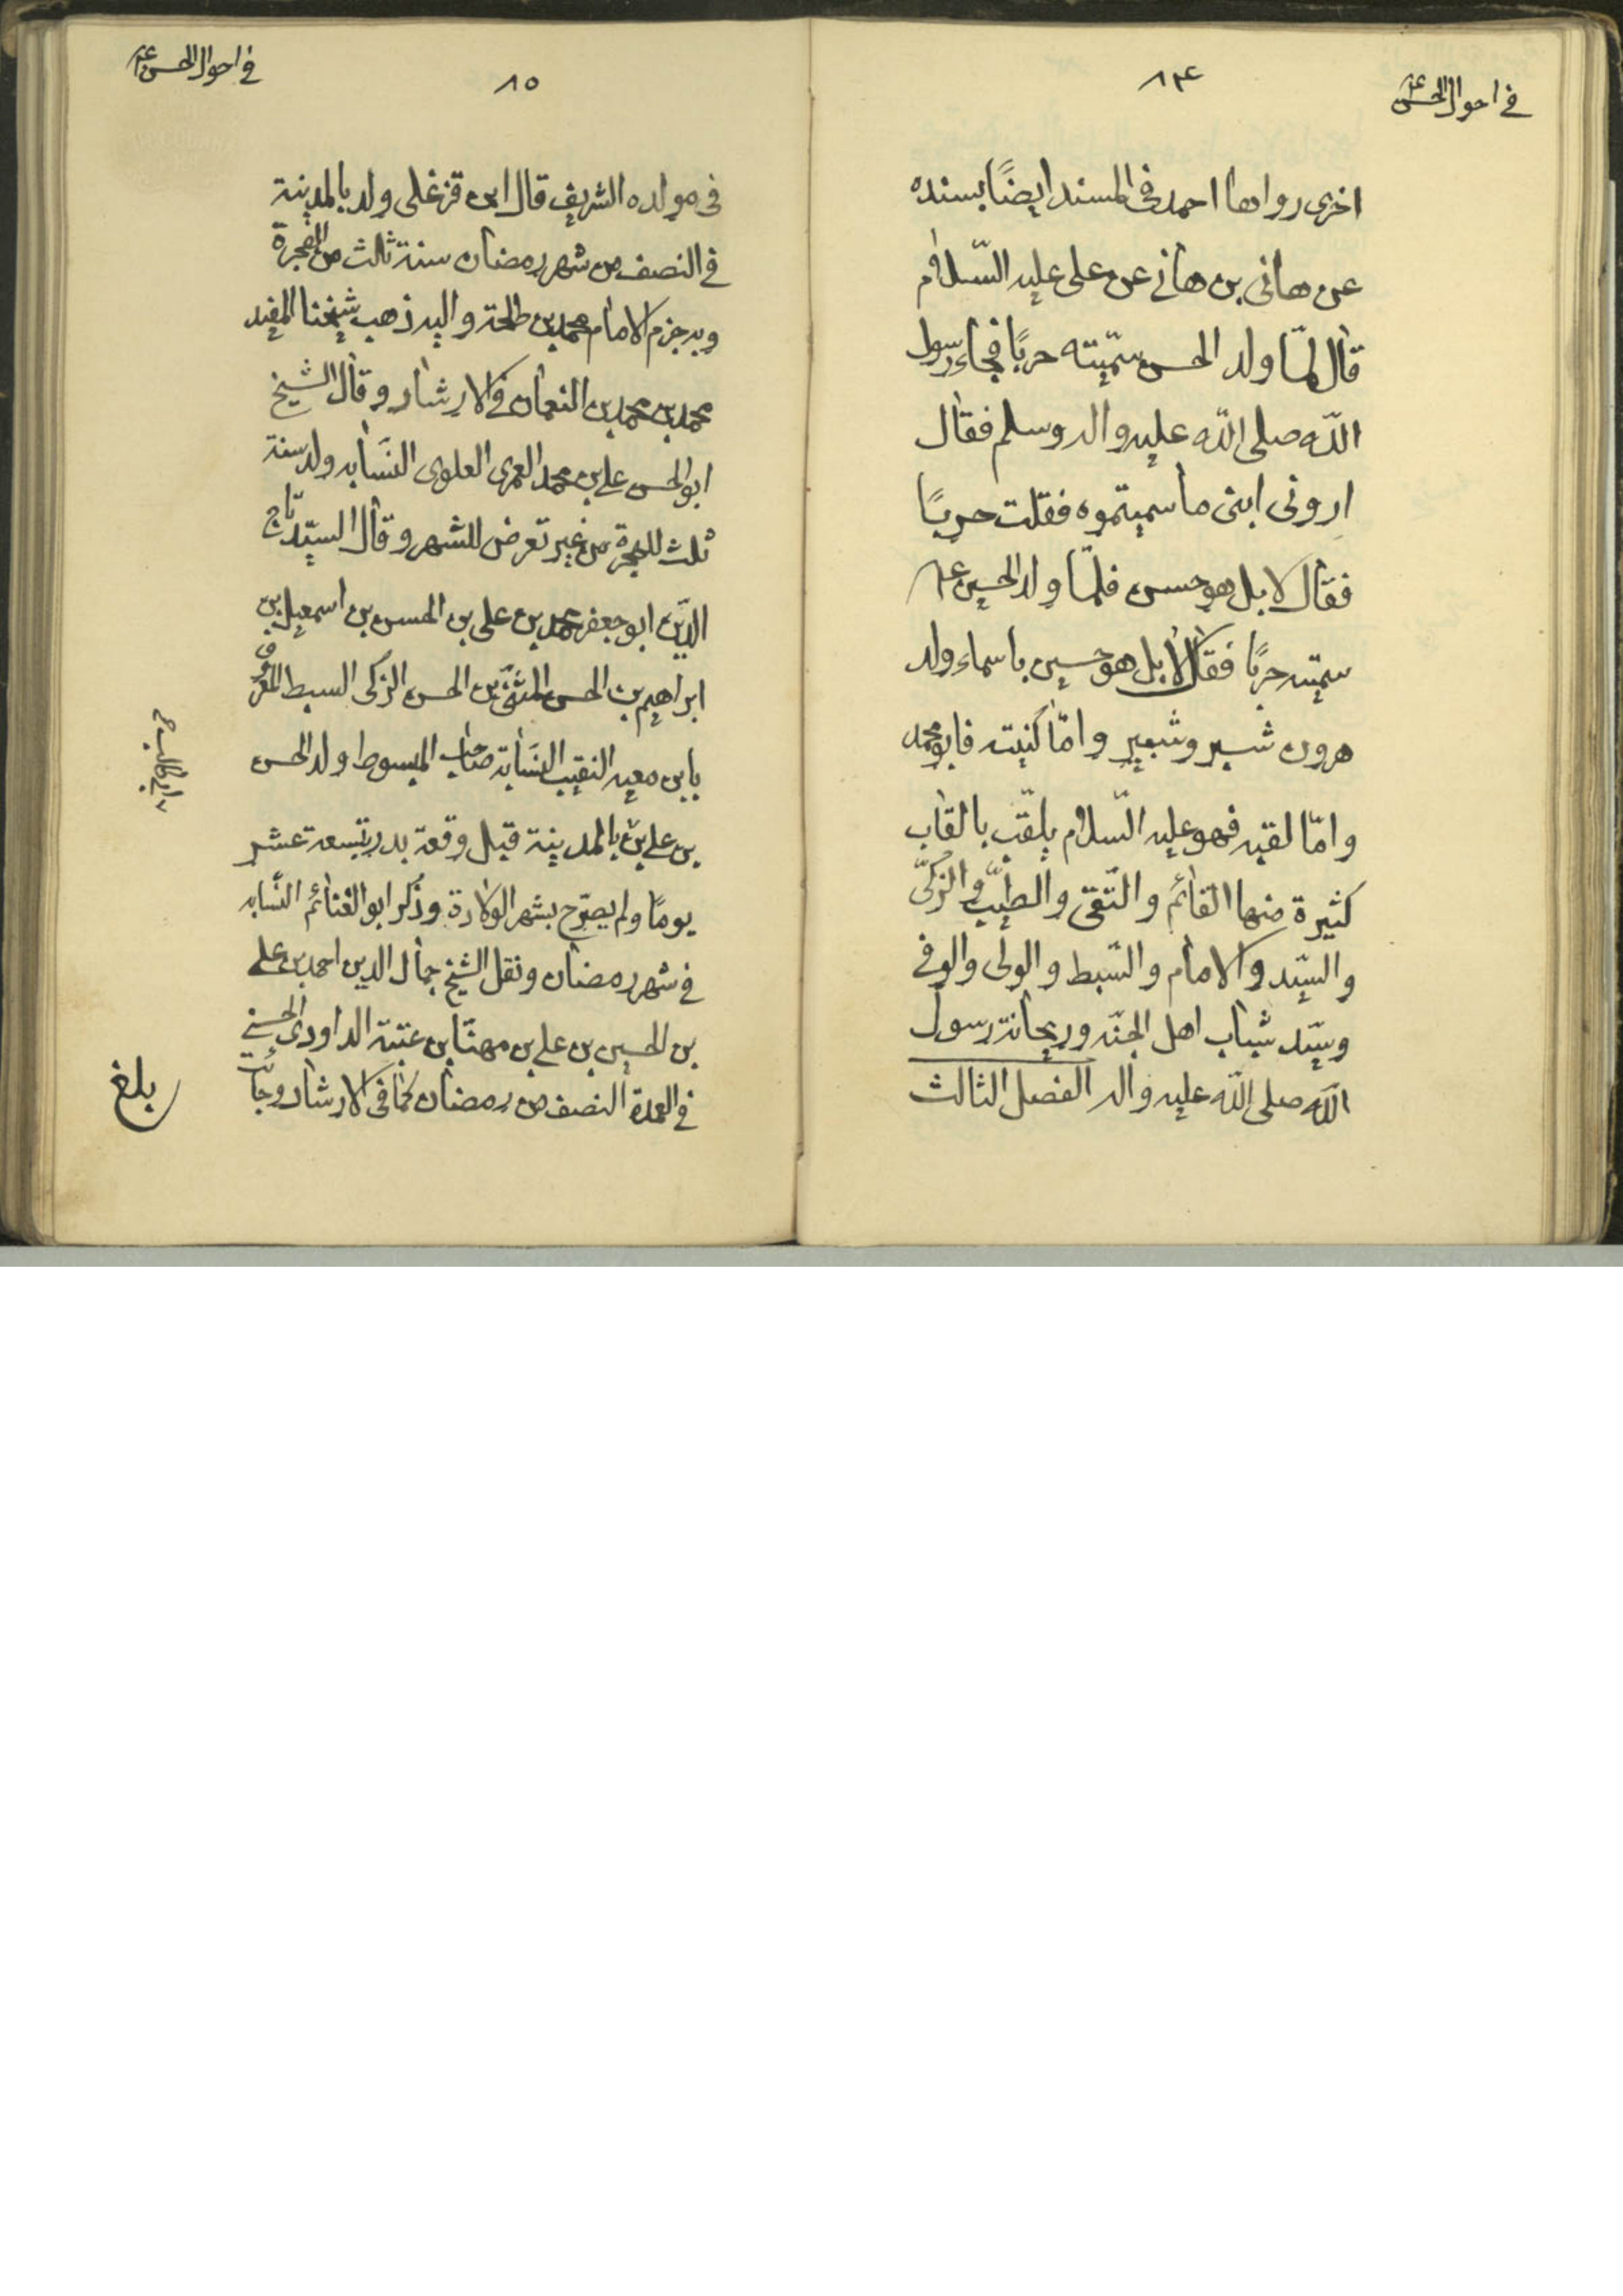 في احوال الحسن ع
٨٤
اخرى رواها احمد فى المسند ايضًا بسنده
عن هانى بن هانى عن على عليه السّلام
قال لمّا ولد الحسن سمّيته حربًا فجاء رسول
اللّه صلى اللّه عليه واله وسلم فقال
ارونى ابنى ما سميتموه فقلت حربًا
فقال لا بل هو حسن فلمّا ولد الحسين ع
سميته حربًا فقال لا بل هو حسين باسماء ولد
هرون شبر وشبير وامّا كنيته فابو محمد
وامّا لقبه فهو عليه السّلام يلقّب بالقاب
كثيرة منها القائم والتّقى والطيّب والزكىّ
والسيّد والامام والسّبط والولى والوفى
وسيّد شباب اهل الجنّه وريحانة رسول
اللّه صلى اللّه عليه واله الفصل الثالث
في احوال الحسن ع
٨٥
فى مولده الشريف قال ابن قزغلى ولد بالمدينة
في النصف من شهر رمضان سنة ثالث من الهجرة
وبه جزم الامام محمد بن طلحة واليه ذهب شيخنا المفيد
محمد بن محمد بن النعمان فى الارشاد وقال الشيخ
ابو الحسن على بن محمد العمرى العلوى النسّابه ولد سنة
ثلث للهجرة من غير تعرض للشهر وقال السيّد تاج
الدّين ابو جعفر محمد بن على بن الحسن بن اسمعيل بن
ابراهيم بن الحسن المثنّى بن الحسن الزكى السبط المعروف
بابن معيه النقيب النسّابة صاحب المبسوط ولد الحسن
بن على بالمدينة قبل وقعة بدر بتسعة عشر
يومًا ولم يصرّح بشهر الولادة وذكر ابو الغنائم النسّابه
في شهر رمضان ونقل الشيخ جمال الدين احمد بن على
بن الحسين بن على بن مهنّا بن عتبة الداودى الحسنى
في العمدة النصف من رمضان كما فى الارشاد وجائت
بلغ